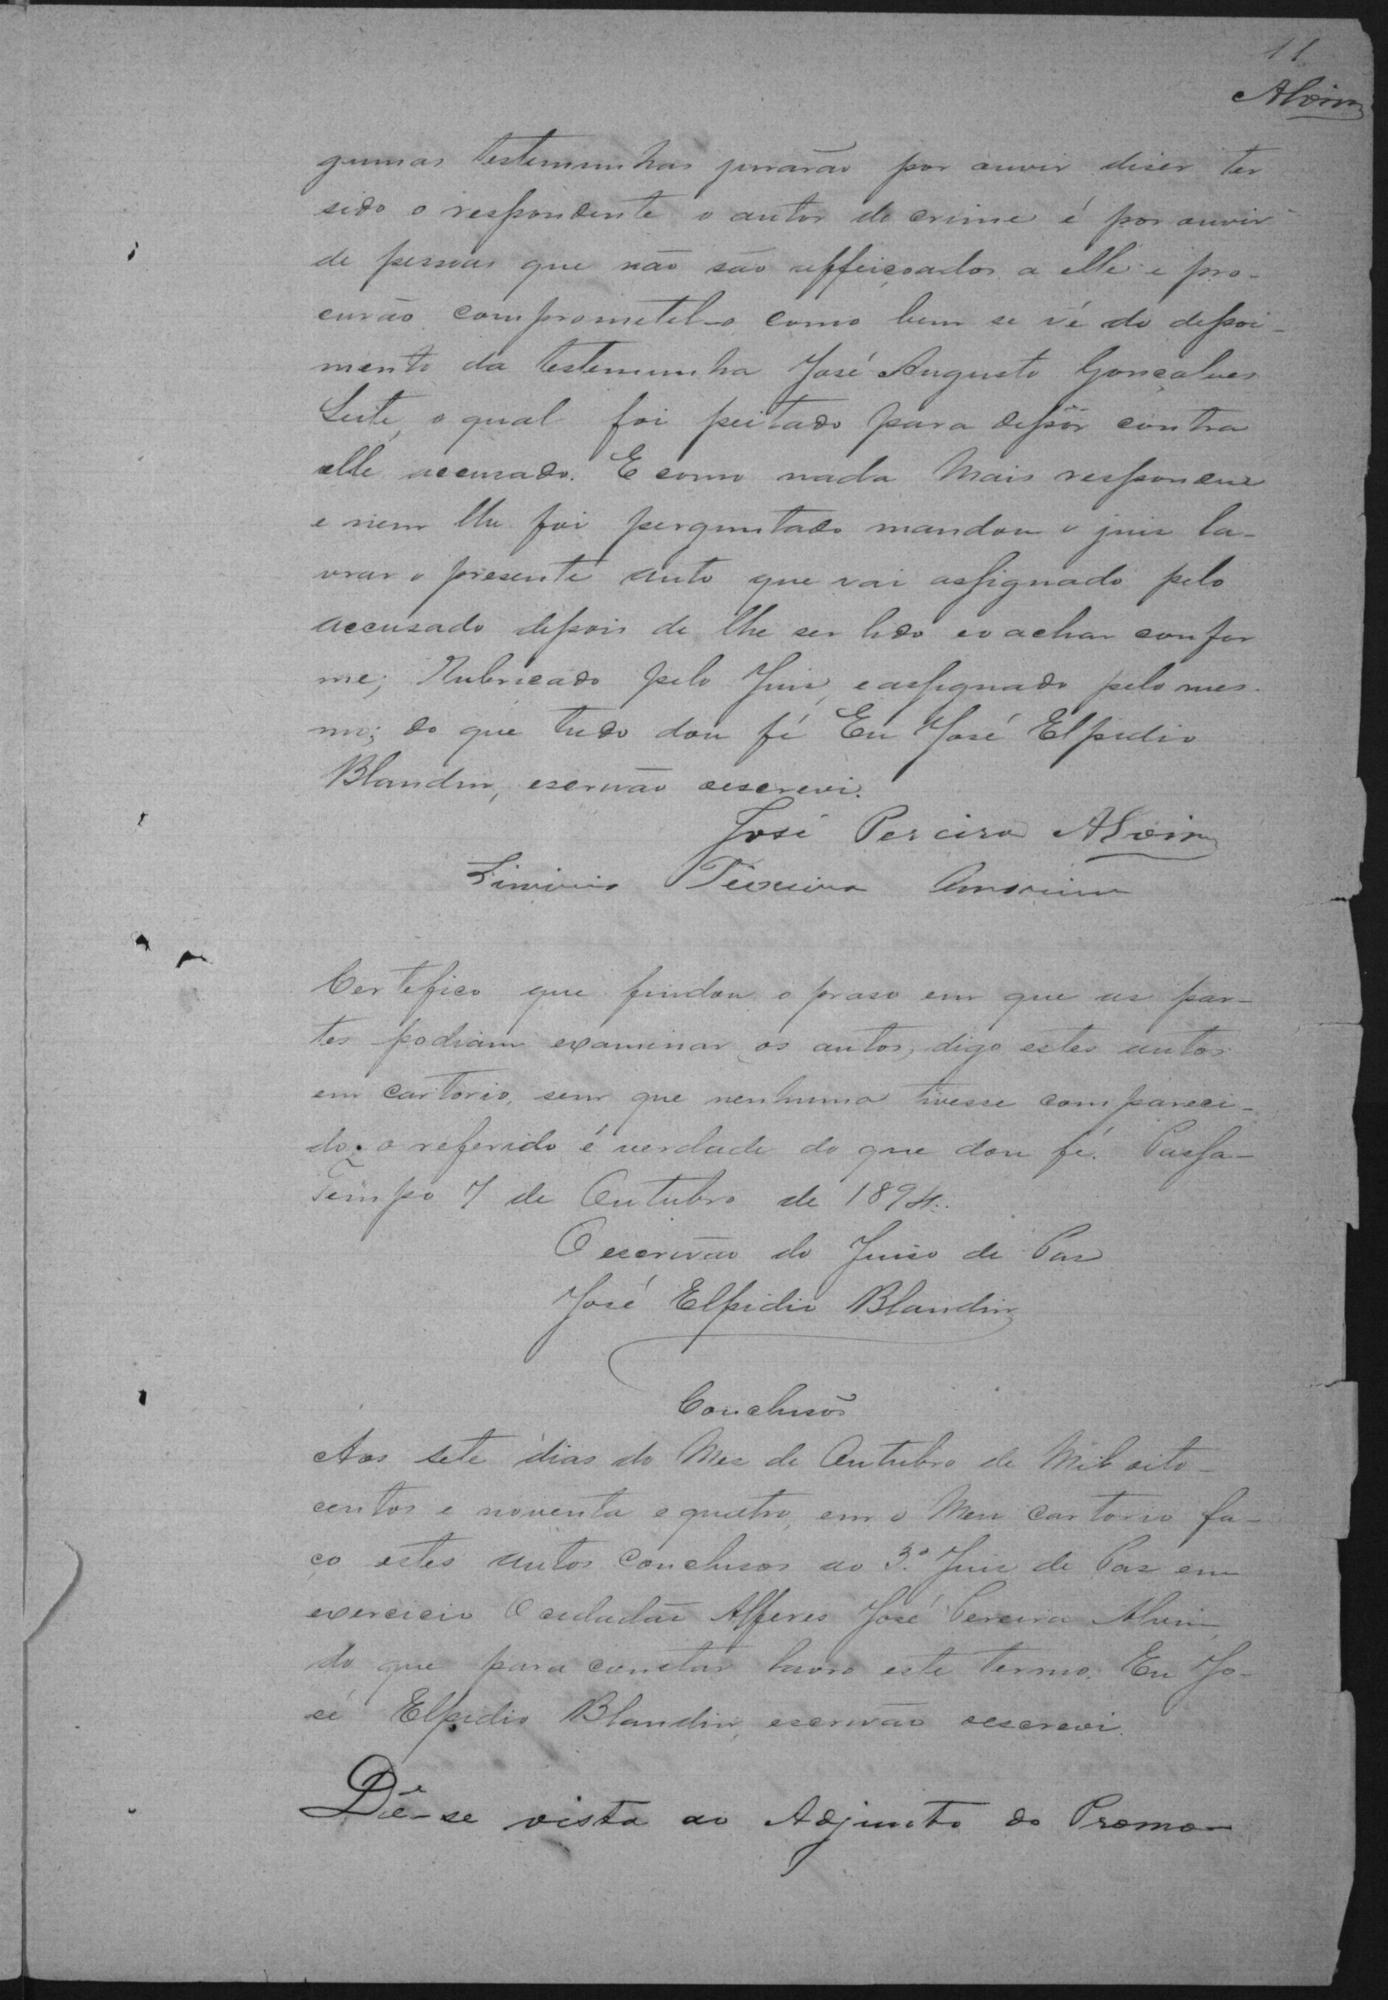 11
Alvim
gumas testemunhas jurarão por ouvir diser ter
sido o respondente o autor do crime é por ouvir
de pessoas que não são affeiçoados a elle e pro-
curão comprometel-o como bem se vê do depoi-
mento da testemunha José Augusto Gonçalves
Leite, o qual foi peitado para depôr contra
elle accusado. E como nada mais respondeu
e nem lhe foi perguntado mandou o juiz la-
vrar o presente auto que vai assignado pelo
accusado depois de lhe ser lido e o achar confor
me; Rubricado pelo Juiz, e assignado pelo mes-
mo; do que tudo dou fé Eu José Elpidio
Blandin, escrivão oescrevi.
José Pereira Alvim
Teixeira Amorim
Certefico que findou o praso em que as par-
tes podiam examinar os autos, digo estes autos
em cartorio, sem que nenhuma tivesse compareci-
do: o referido é verdade do que dou fé. Passa-
Tempo 7 de Outubro de 1894.
O escrivão do Juiso de Paz
José Elpidio Blandin
Conclusão
Aos sete dias do Mez de Outubro de Mil oito-
centos e noventa e quatro, em o Meu cartorio fa-
ço estes autos conclusos ao 3.º Juiz de Paz em
exercicio O cidadão Alferes José Pereira Alvim,
do que para constar lavro este termo. Eu Jo-
sé Elpidio Blandin, escrivão oescrevi.
Dê-se vista ao Adjunto do Promo-